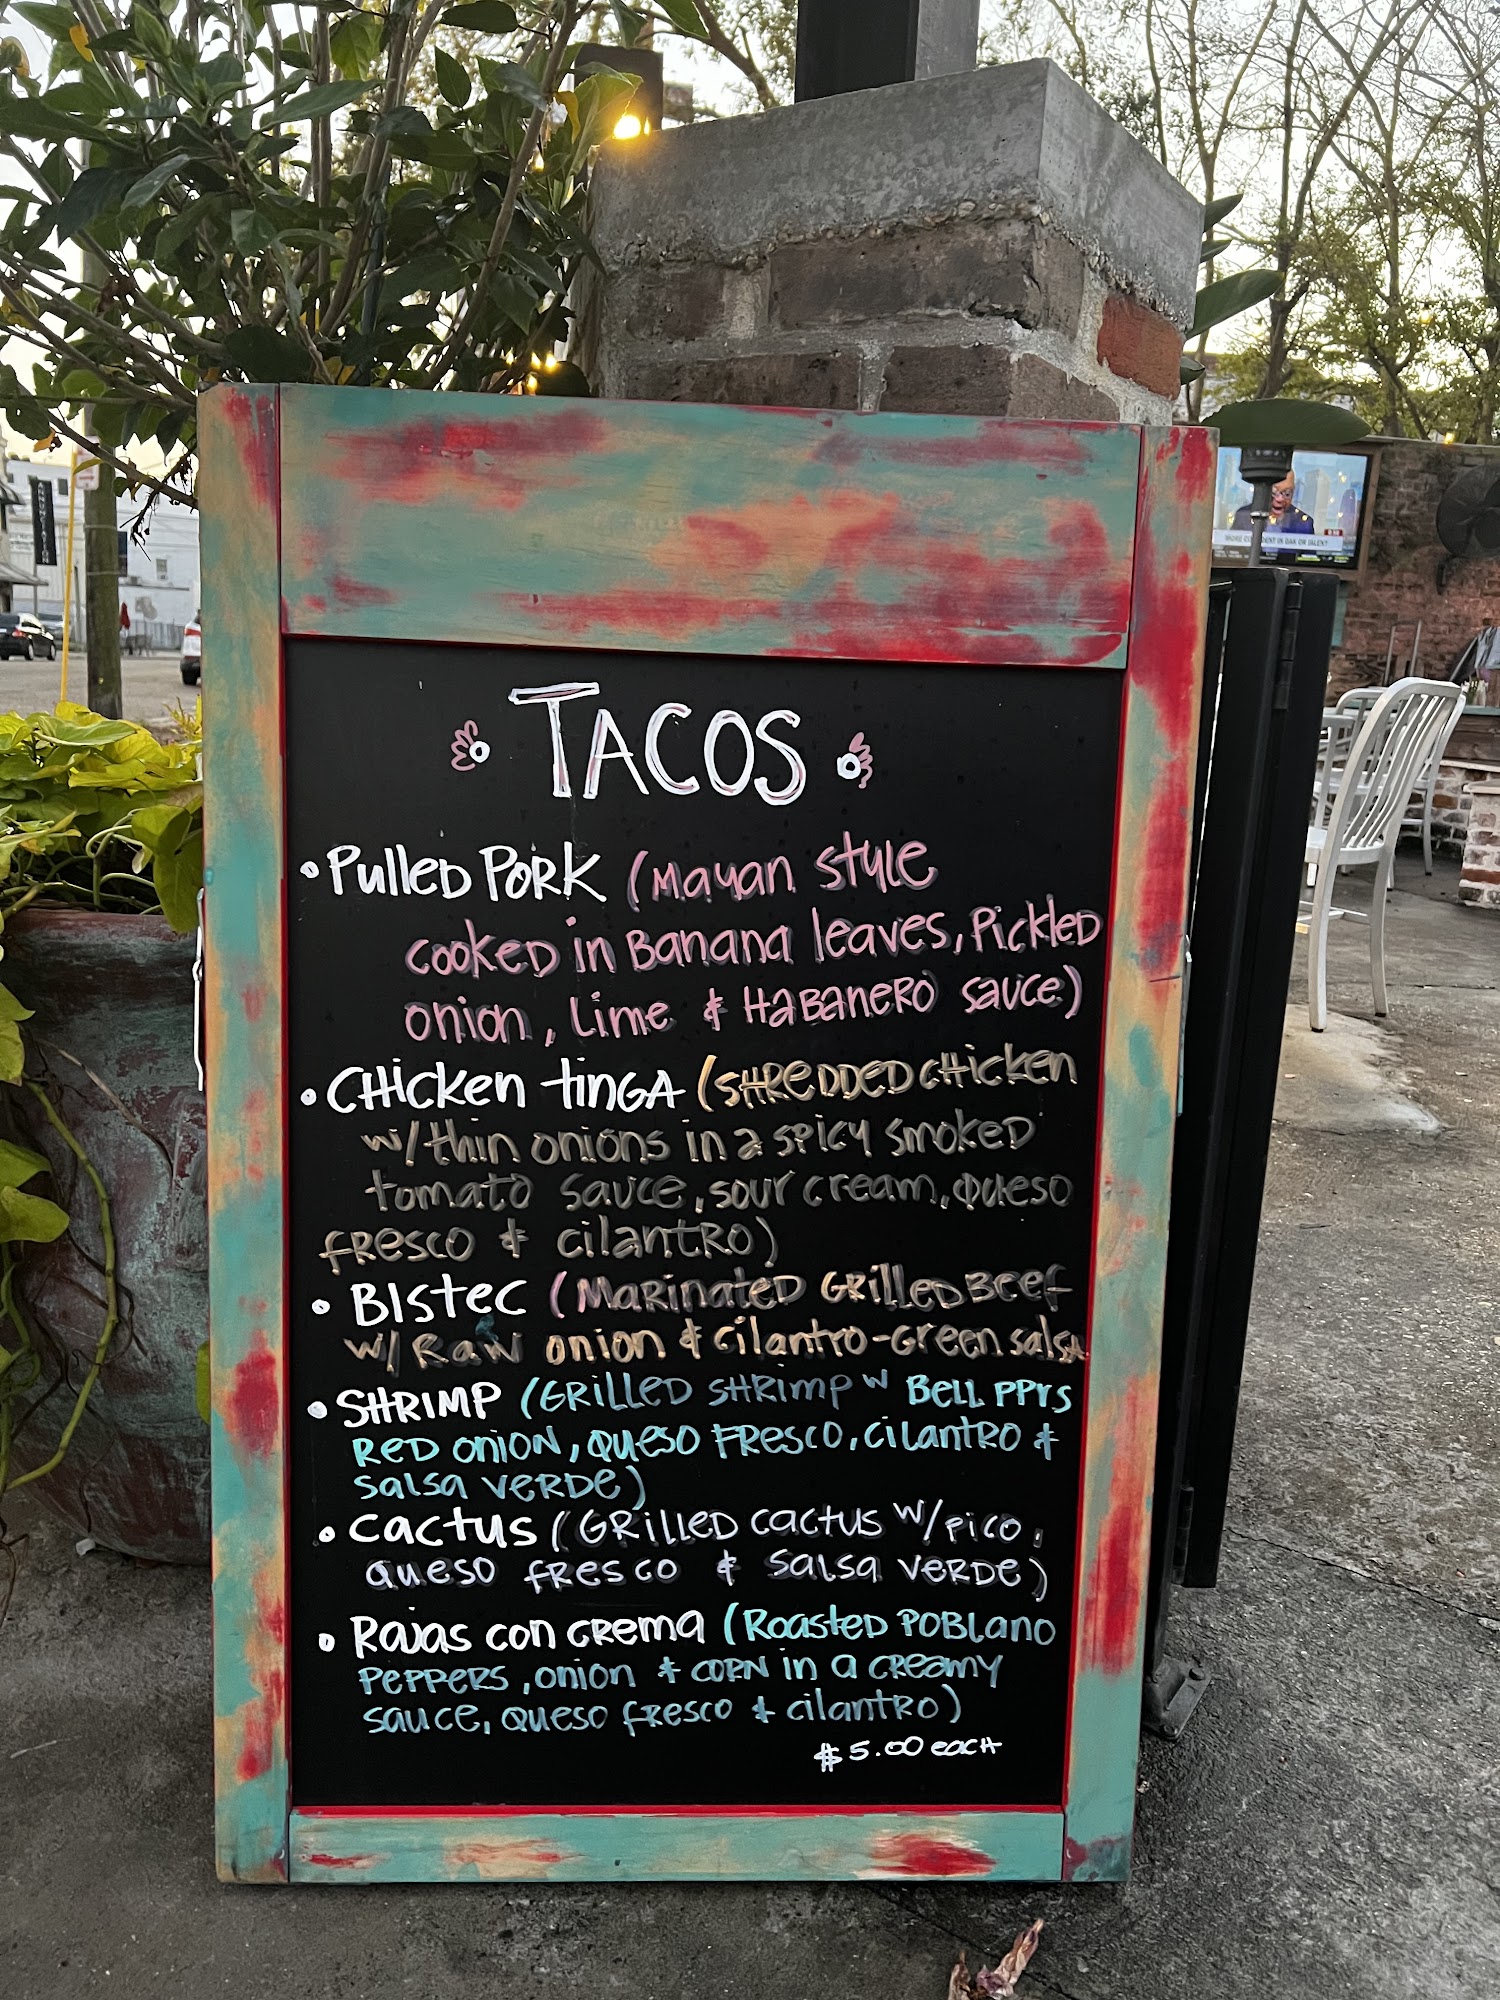 TACOS
• Pulled Pork (Mayan style
cooked in Banana leaves, Pickled
onion, Lime & Habanero sauce)
• Chicken tinga (Shredded chicken
w/ thin onions in a spicy smoked
tomato sauce, sour cream, queso
fresco & cilantro)
• Bistec (Marinated Grilled Beef
w/ Raw onion & cilantro-Green salsa
• Shrimp (Grilled Shrimp w Bell pprs
Red onion, queso fresco, cilantro &
salsa verde)
• Cactus (Grilled cactus w/ pico,
queso fresco & salsa verde)
• Rajas con crema (Roasted Poblano
peppers, onion & corn in a creamy
sauce, queso fresco & cilantro)
$5.00 each